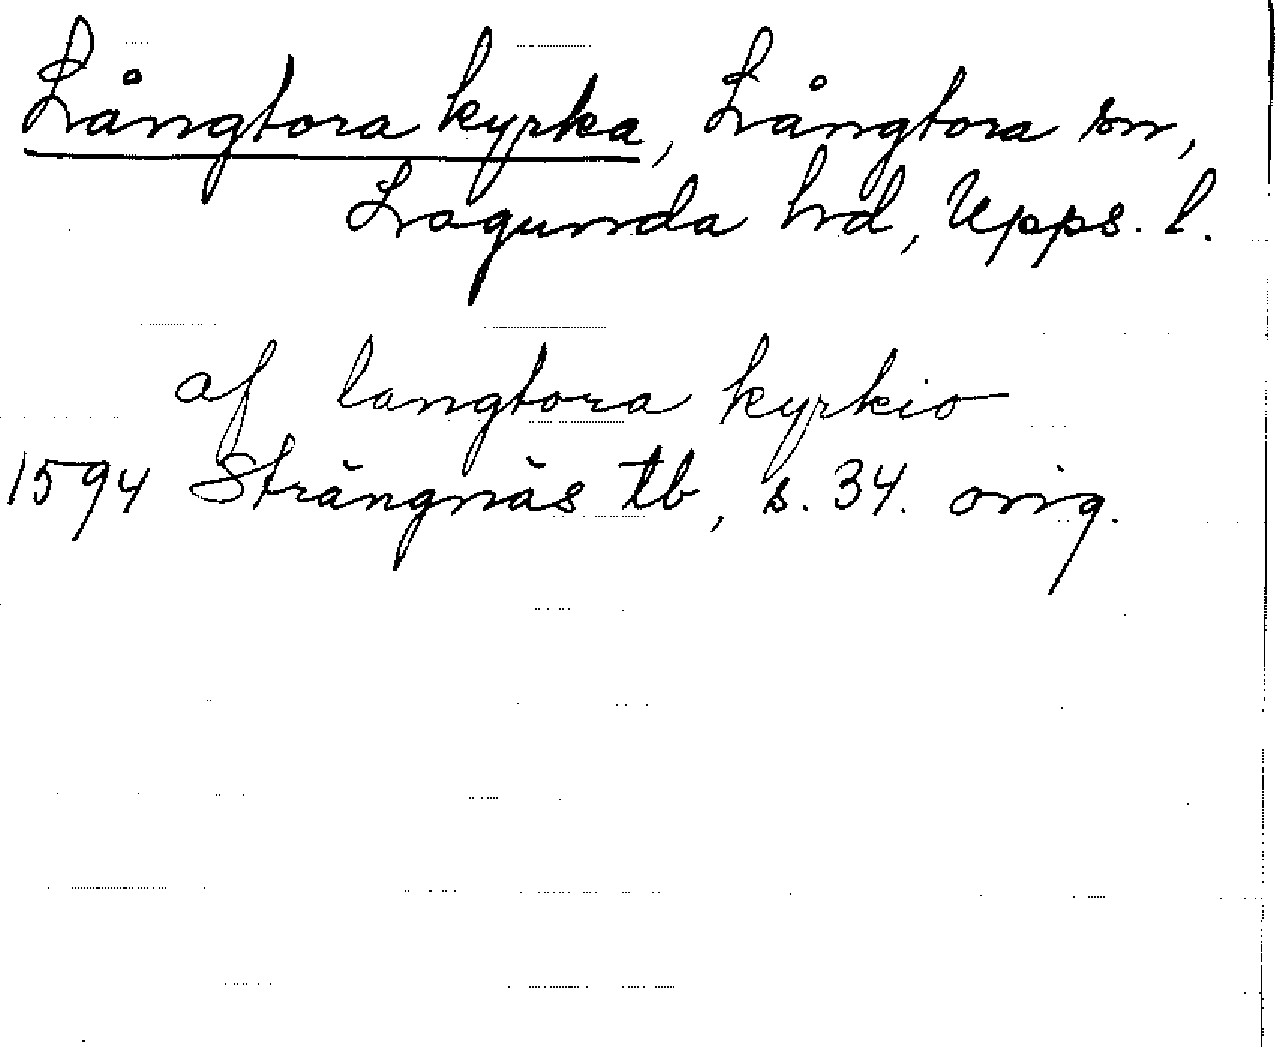 Långtora kyrka, Långtora sn,
Lagunda hd, Upps. l.
af langtora kyrkio
1594 Strängnäs tb, s. 34. orig.